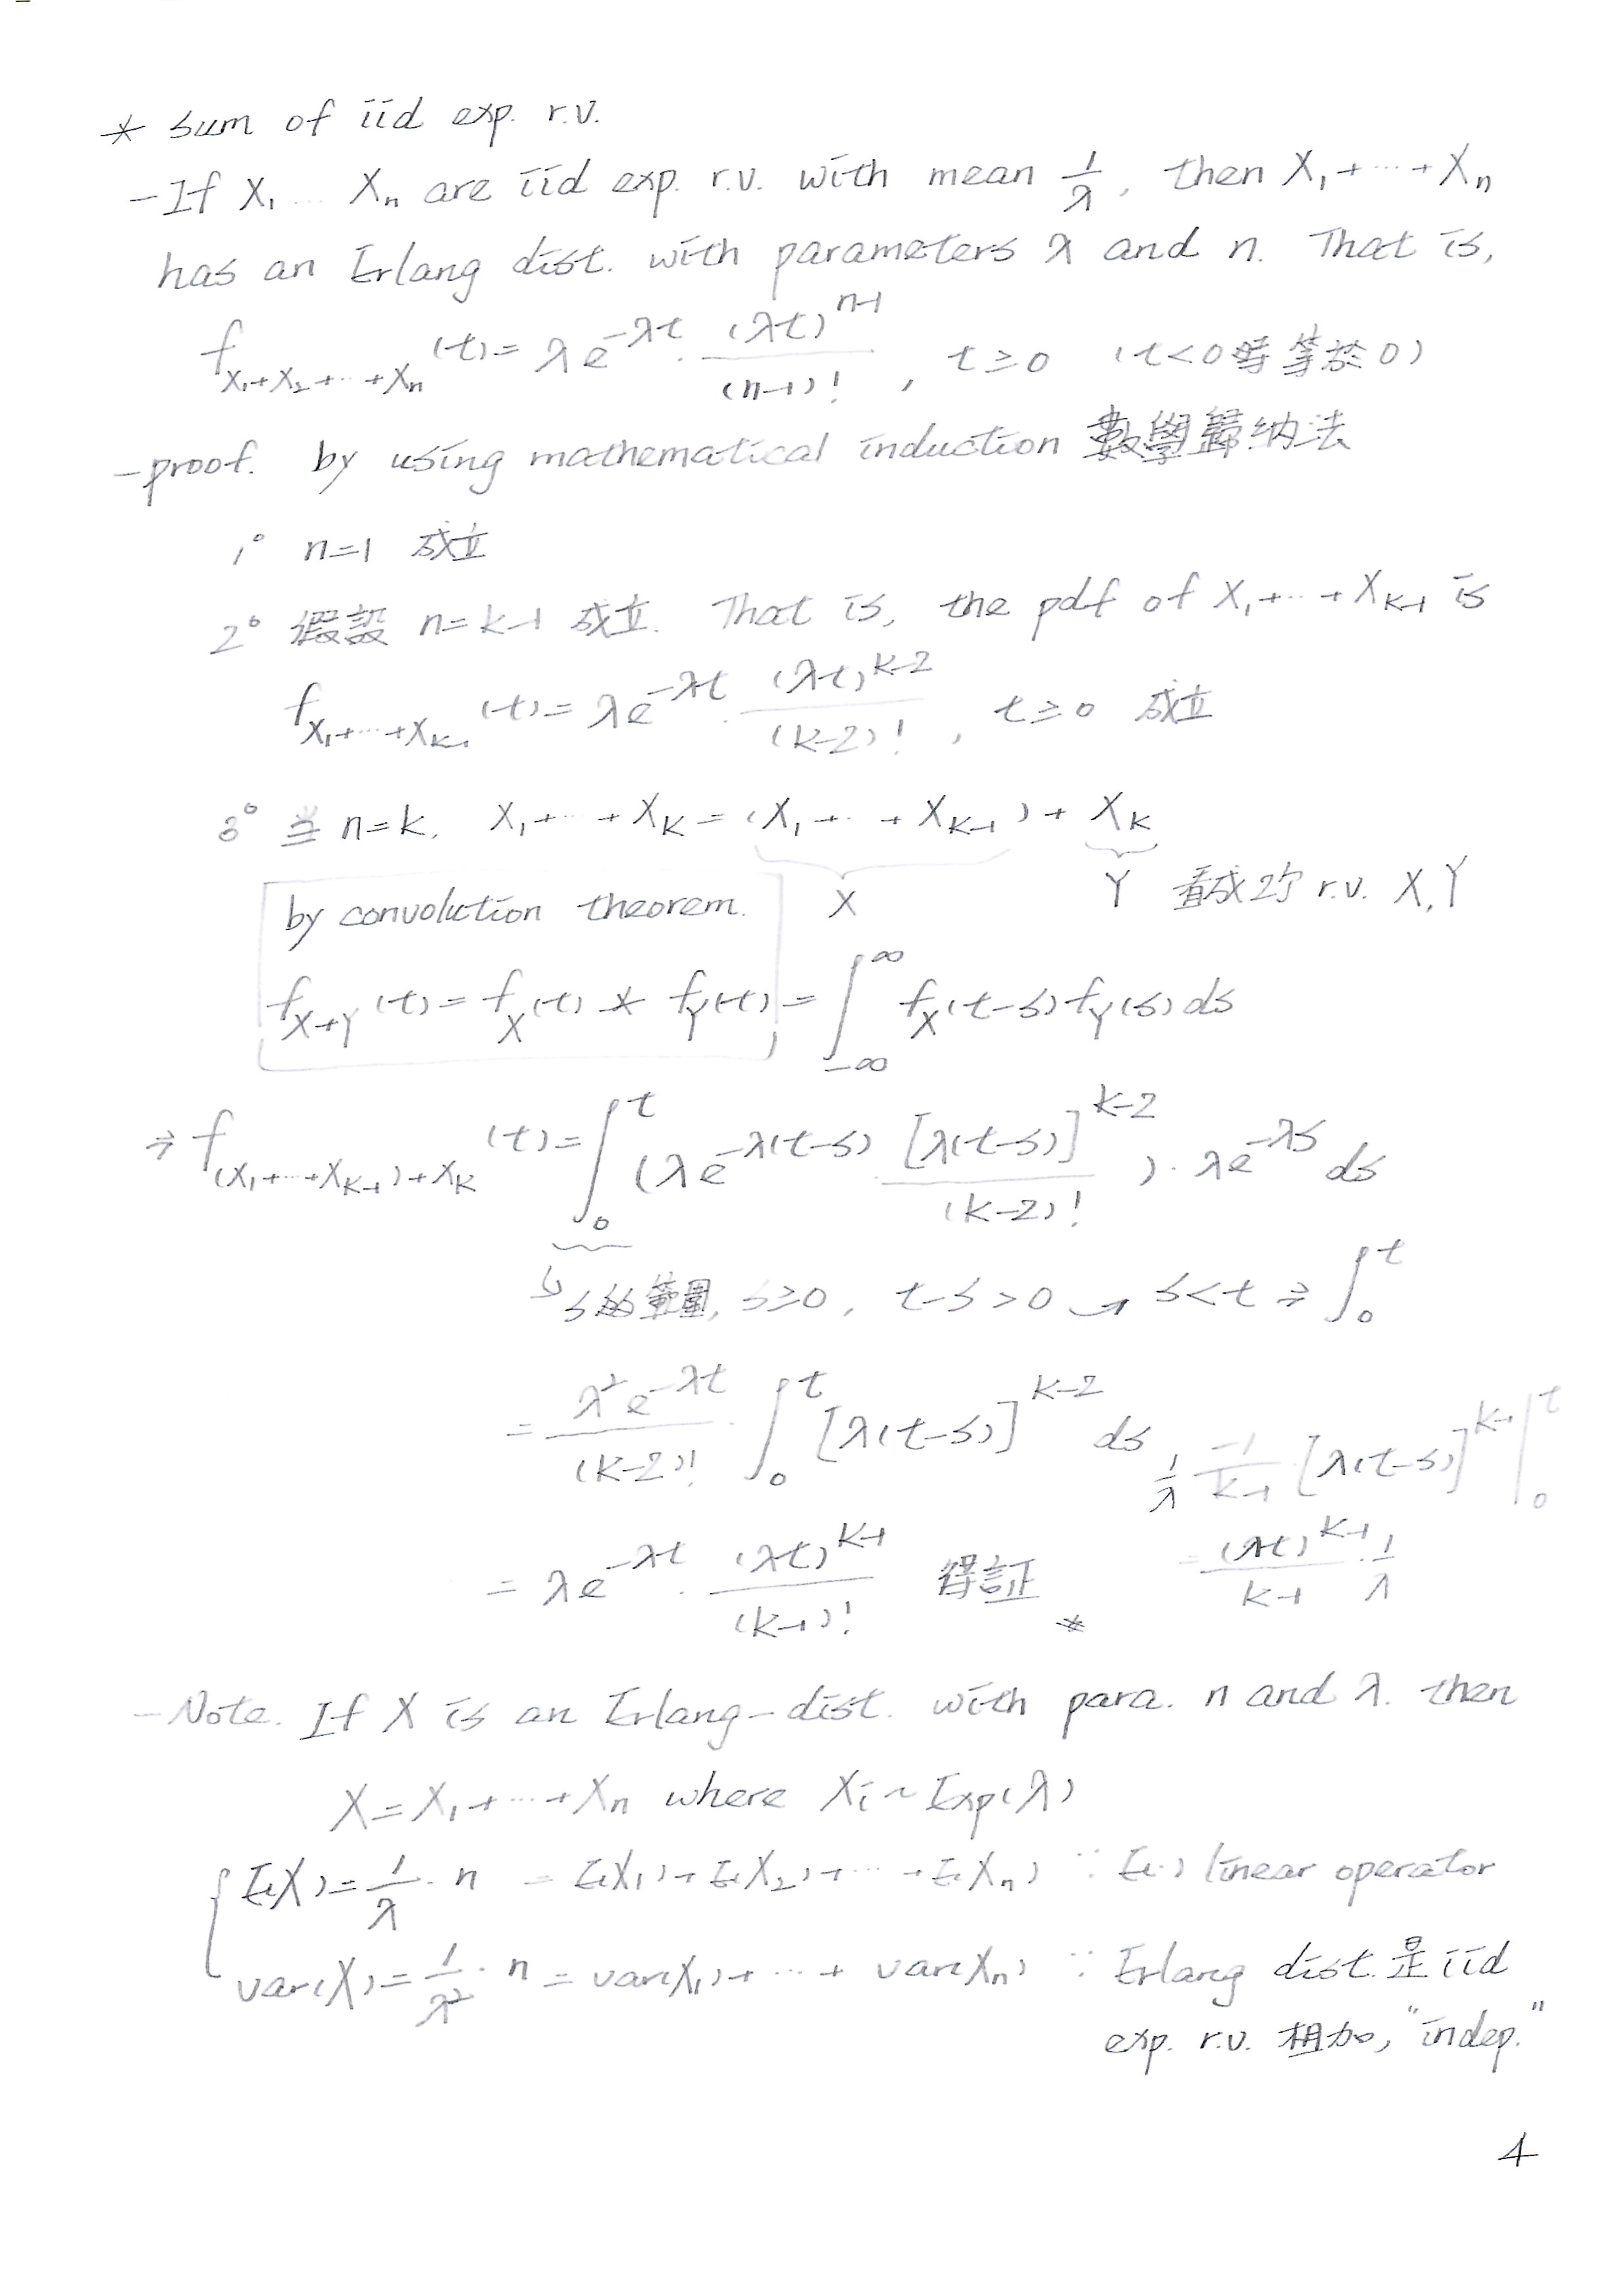 * sum of iid exp. r.v.
- If X₁ … Xₙ are iid exp. r.v. with mean 1/λ, then X₁+…+Xₙ
has an Erlang dist. with parameters λ and n. That is,
f_{X₁+X₂+…+Xₙ}(t) = λe^{-λt} · (λt)^{n-1}/(n-1)! , t≥0 (t<0時等於0)
- proof. by using mathematical induction 數學歸纳法
1° n=1 成立
2° 假設 n=k-1 成立. That is, the pdf of X₁+…+X_{k-1} is
f_{X₁+…+X_{k-1}}(t) = λe^{-λt} · (λt)^{k-2}/(k-2)! , t≥0 成立
3° 当 n=k, X₁+…+X_k = (X₁+…+X_{k-1}) + X_k
by convolution theorem. X Y 看成2个 r.v. X,Y
f_{X+Y}(t) = f_X(t) * f_Y(t) = ∫_{-∞}^{∞} f_X(t-s) f_Y(s) ds
⇒ f_{(X₁+…+X_{k-1})+X_k}(t) = ∫_0^t (λe^{-λ(t-s)} [λ(t-s)]^{k-2}/(k-2)!) · λe^{-λs} ds
↳ s的範圍, s≥0, t-s>0 → s<t ⇒ ∫_0^t
= λ²e^{-λt}/(k-2)! · ∫_0^t [λ(t-s)]^{k-2} ds 1/λ -1/(k-1) [λ(t-s)]^{k-1} |_0^t
= λe^{-λt} · (λt)^{k-1}/(k-1)! 得証 * = (λt)^{k-1}/(k-1) · 1/λ
- Note. If X is an Erlang-dist. with para. n and λ. then
X = X₁+…+Xₙ where Xi ~ Exp(λ)
{ E(X) = 1/λ · n = E(X₁)+E(X₂)+…+E(Xₙ) ∵ E(·) linear operator
var(X) = 1/λ² · n = var(X₁)+…+var(Xₙ) ∵ Erlang dist. 是 iid
exp. r.v. 相加, "indep."
4